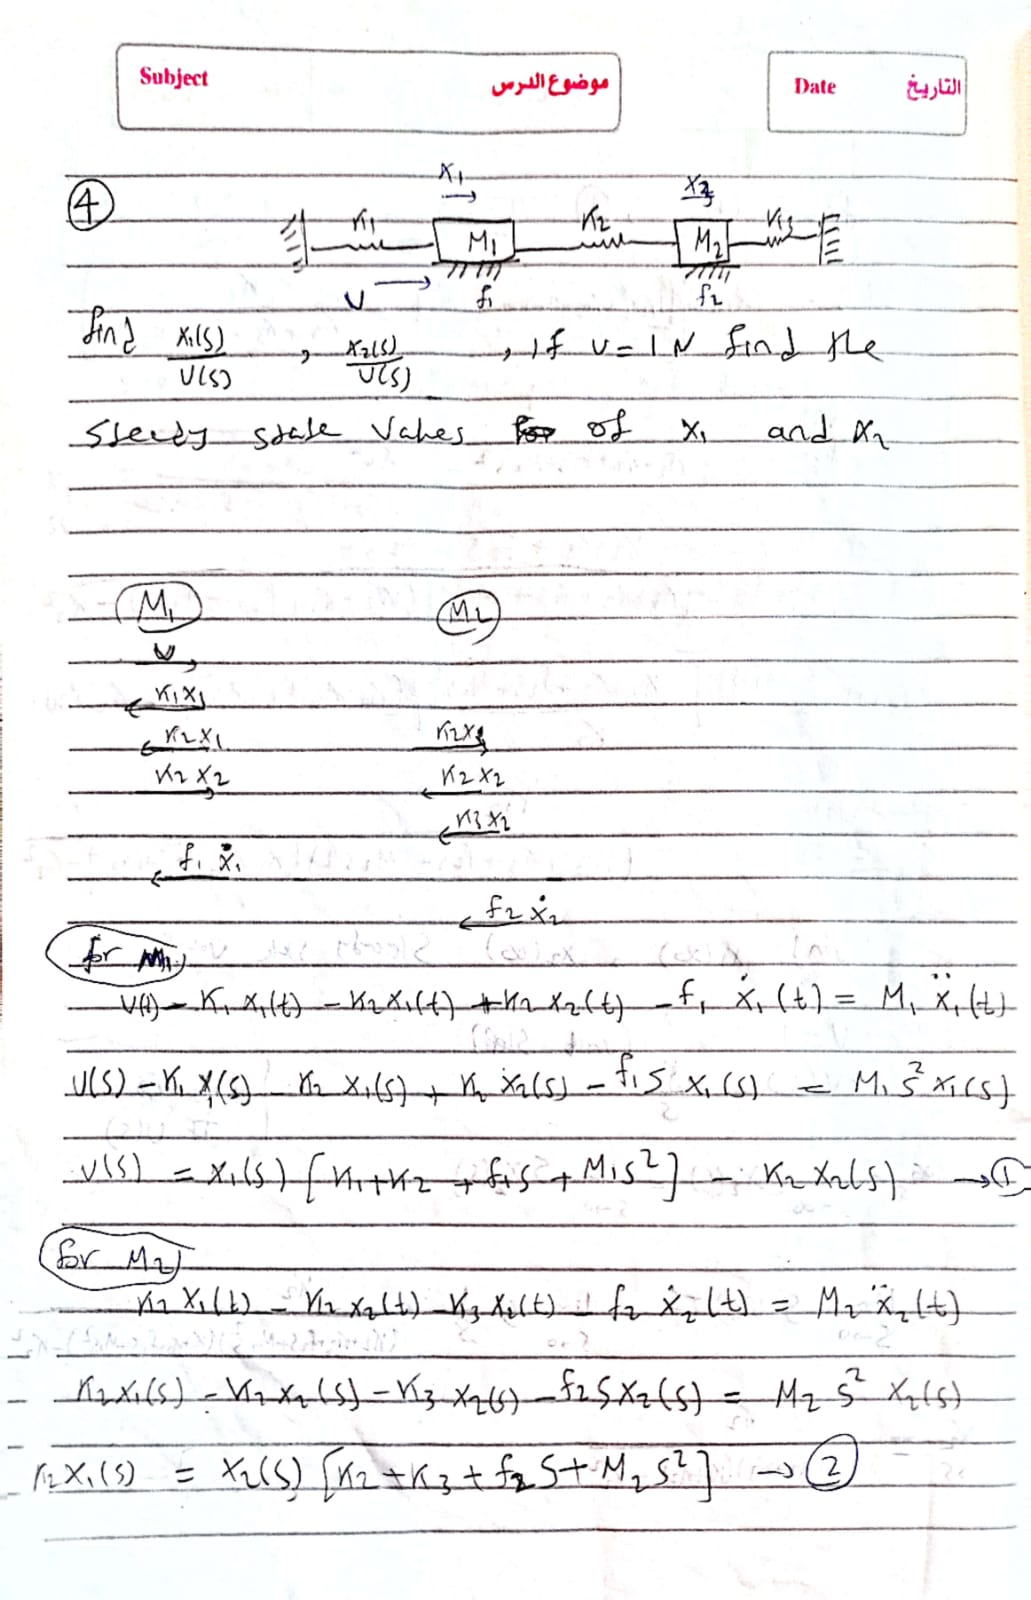 Subject موضوع الدرس Date التاريخ
4
x₁ x₂
K₁ M₁ K₂ M₂ K₃
U f₁ f₂
find X₁(s)/U(s) , X₂(s)/U(s) , if U = 1 N find the
steady state values of x₁ and x₂
M₁ M₂
U
K₁x₁
K₂x₁ K₂x₁
K₂x₂ K₂x₂
K₃x₂
f₁ ẋ₁
f₂ ẋ₂
for M₁
U(t) - K₁ x₁(t) - K₂ x₁(t) + K₂ x₂(t) - f₁ ẋ₁(t) = M₁ ẍ₁(t)
U(s) - K₁ X₁(s) - K₂ X₁(s) + K₂ X₂(s) - f₁ s X₁(s) = M₁ s² X₁(s)
U(s) = X₁(s) [K₁ + K₂ + f₁s + M₁s²] - K₂ X₂(s) → 1
for M₂
K₂ x₁(t) - K₂ x₂(t) - K₃ x₂(t) - f₂ ẋ₂(t) = M₂ ẍ₂(t)
K₂X₁(s) - K₂X₂(s) - K₃ X₂(s) - f₂ s X₂(s) = M₂ s² X₂(s)
K₂X₁(s) = X₂(s) [K₂ + K₃ + f₂ s + M₂ s²] → 2